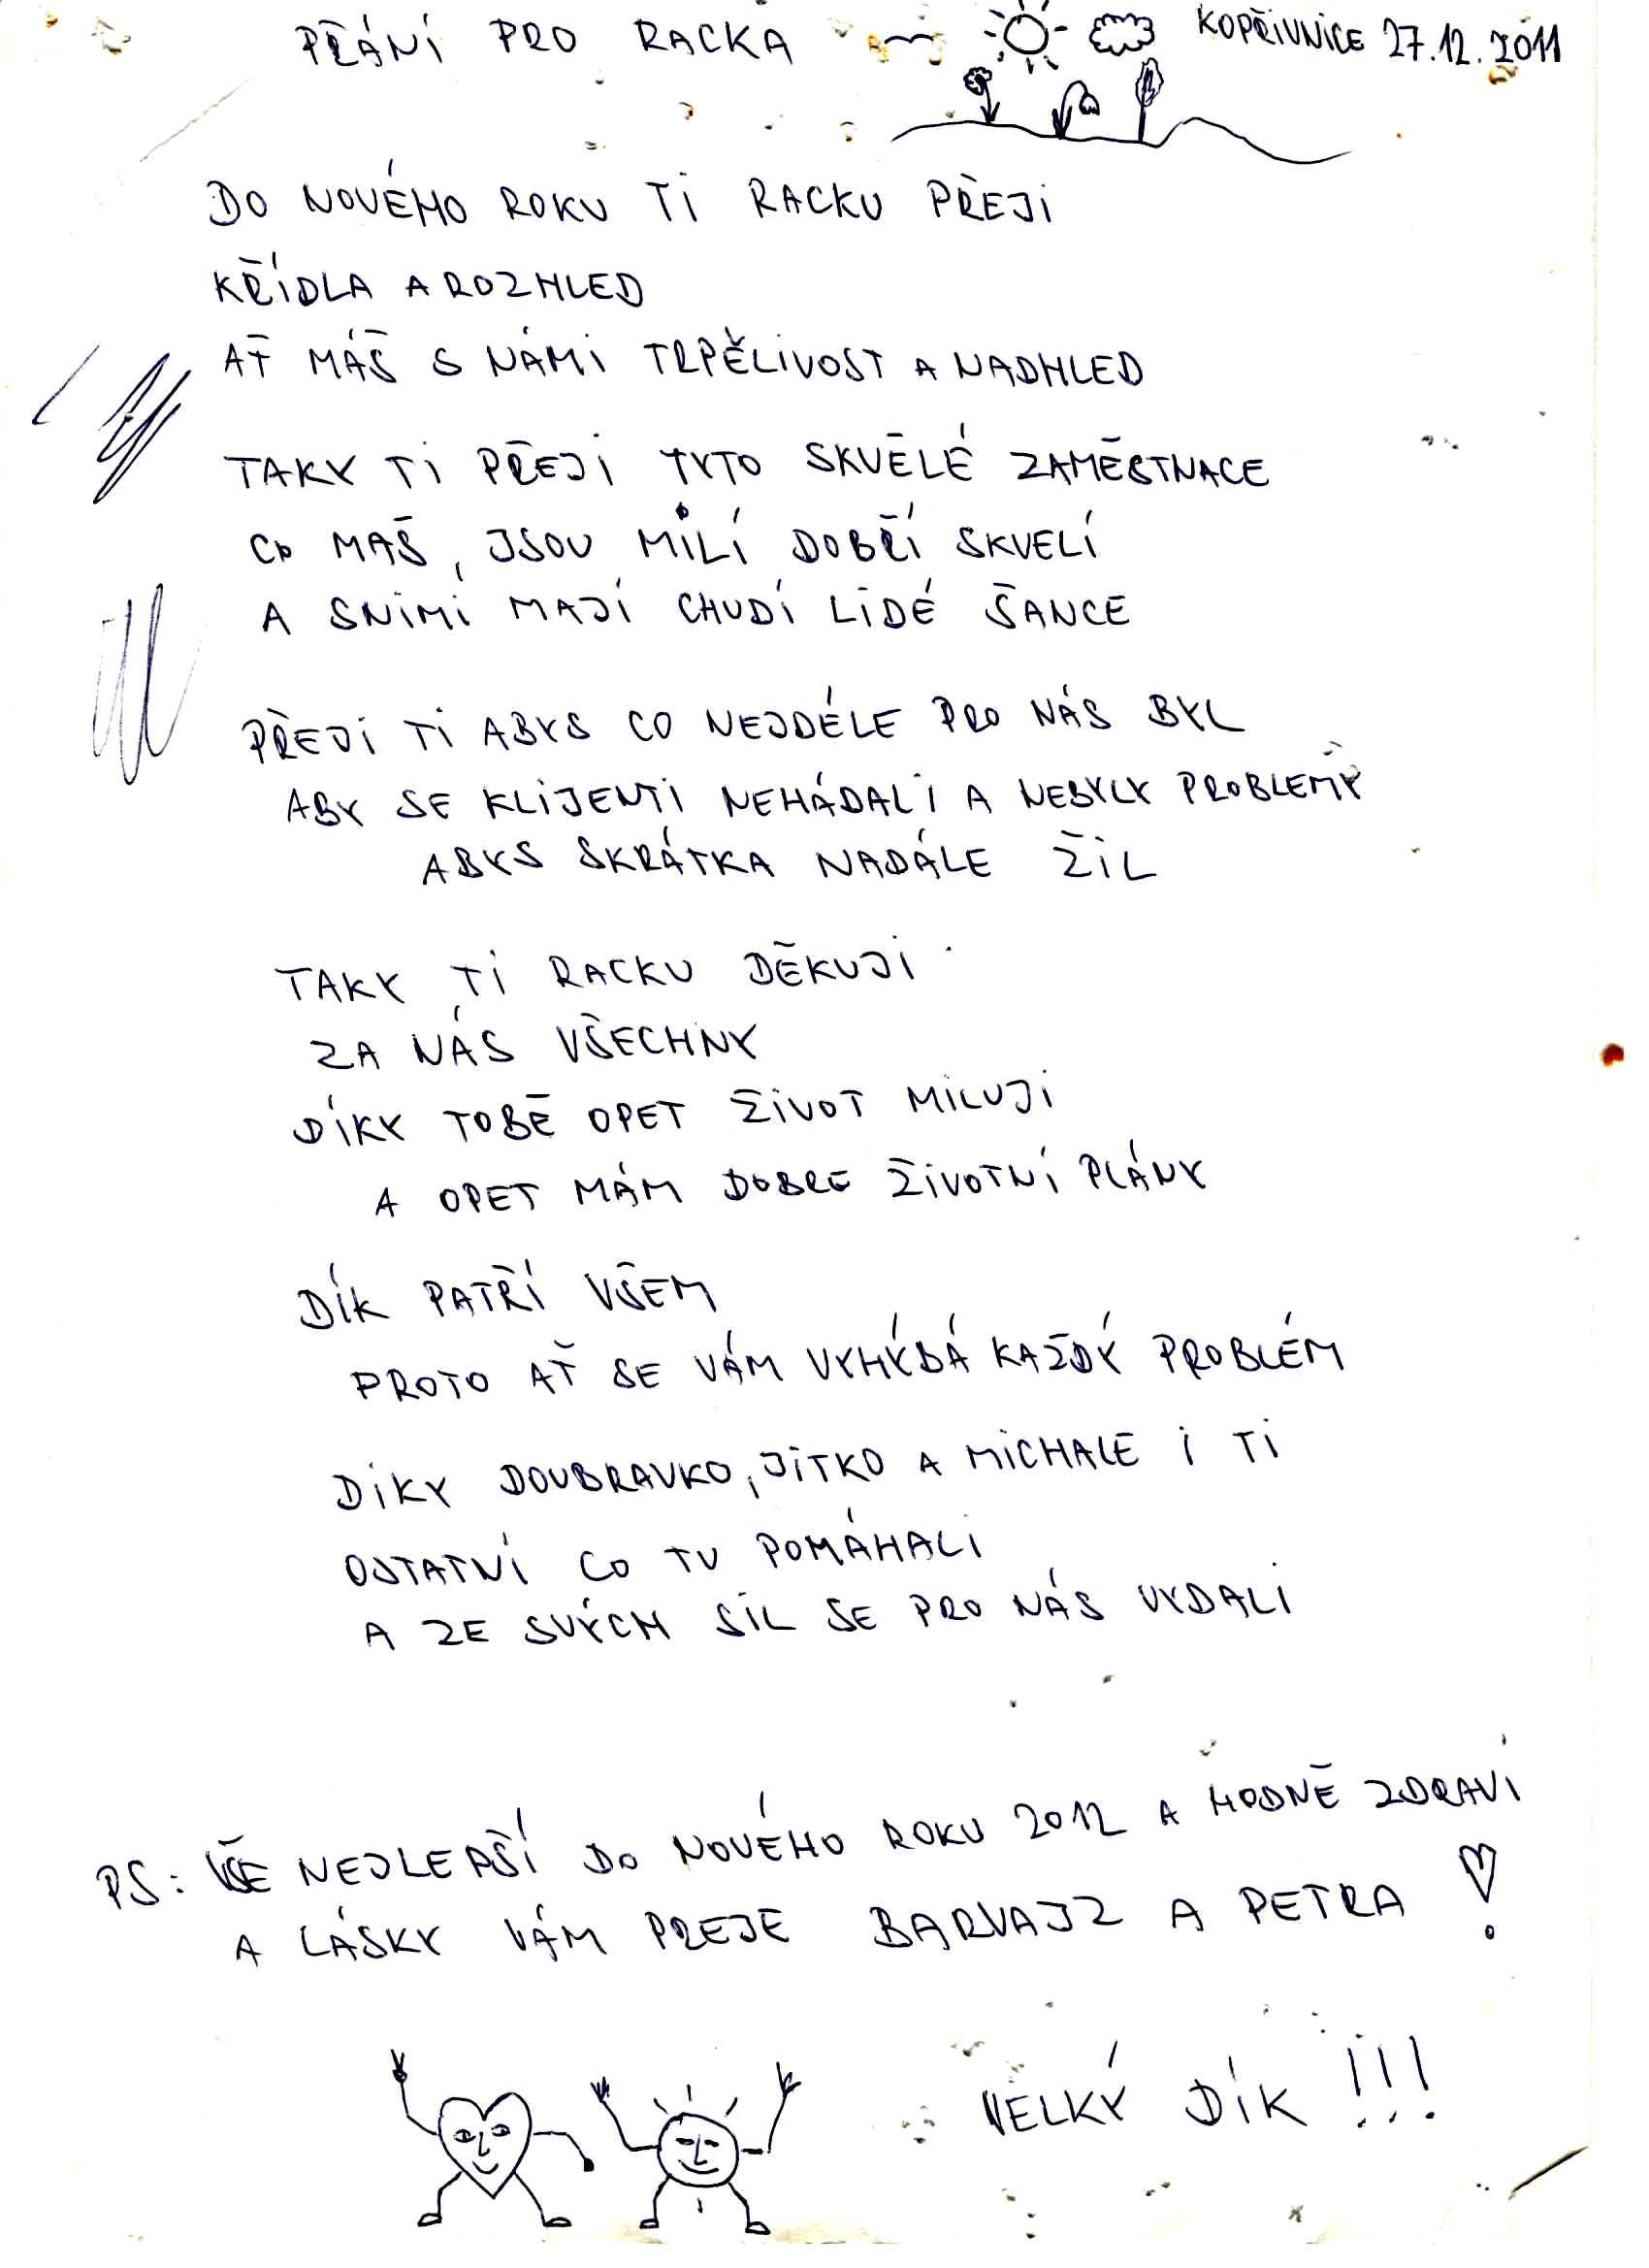 PŘÁNÍ PRO RACKA
KOPŘIVNICE 27.12.2011
DO NOVÉHO ROKU TI RACKU PŘEJI
KŘÍDLA A ROZHLED
AŤ MÁŠ S NÁMI TRPĚLIVOST A NADHLED
TAKY TI PŘEJI TYTO SKVĚLÉ ZAMĚSTNACE
CO MAŠ, JSOU MILÍ DOBŘÍ SKVELÍ
A SNIMI MAJÍ CHUDÍ LIDÉ ŠANCE
PŘEJI TI ABYS CO NEJDÉLE PRO NÁS BYL
ABY SE KLIJENTI NEHÁDALI A NEBYLY PROBLEMY
ABYS SKRÁTKA NADÁLE ŽIL
TAKY TI RACKU DĚKUJI
ZA NÁS VŠECHNY
DÍKY TOBĚ OPET ŽIVOT MILUJI
A OPET MÁM DOBRE ŽIVOTNÍ PLÁNY
DÍK PATŘÍ VŠEM
PROTO AŤ SE VÁM VYHÝBÁ KAŽDÝ PROBLÉM
DIKY DOUBRAVKO, JITKO A MICHALE I TI
OSTATNÍ CO TU POMÁHALI
A ZE SVÝCH SIL SE PRO NÁS VYDALI
PS: VŠE NEJLEPŠÍ DO NOVÉHO ROKU 2012 A HODNĚ ZDRAVÍ
A LÁSKY VÁM PREJE BARVAJZ A PETRA
VELKÝ DÍK !!!